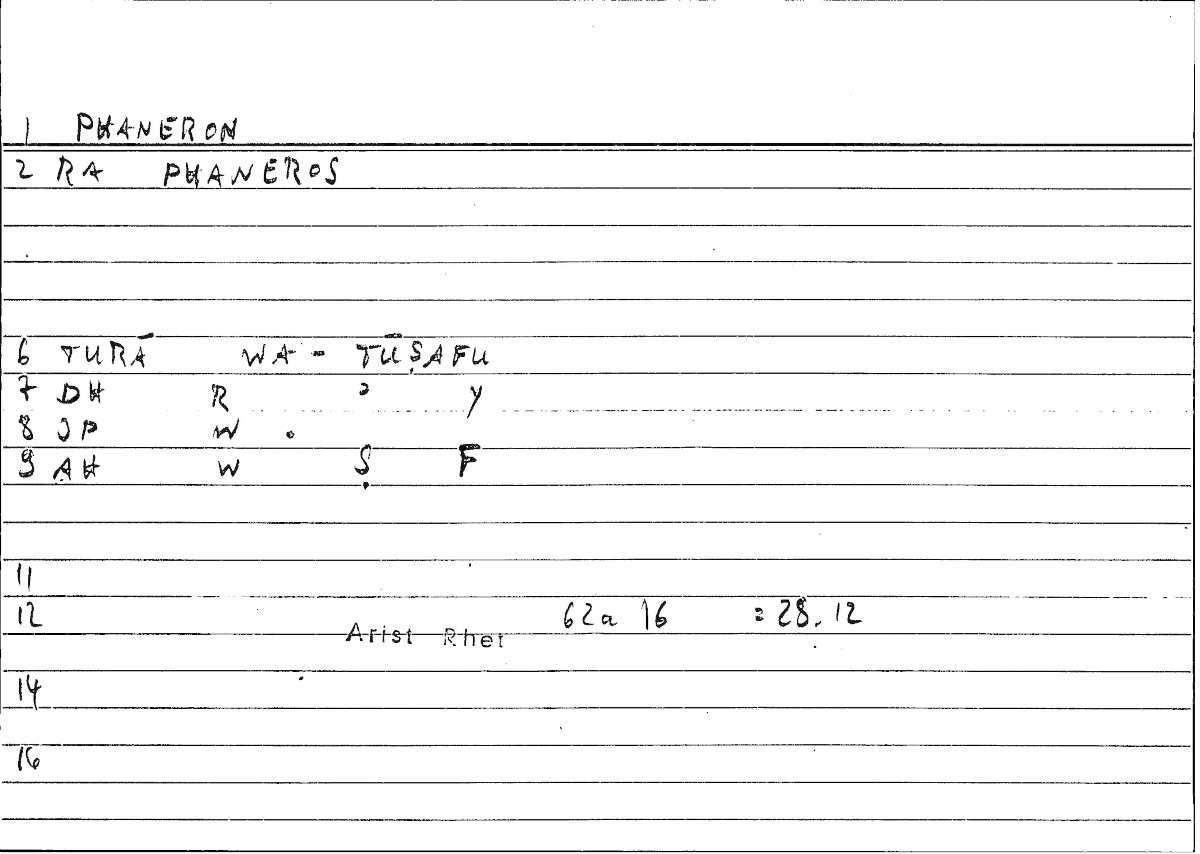 1 PHANERON
2 RA PHANEROS
6 TURĀ WA - TŪṢAFU
7 DH R ʾ Y
8 JP W .
9 AH W Ṣ F
11
12 Arist Rhet 62a 16 = 28.12
14
16